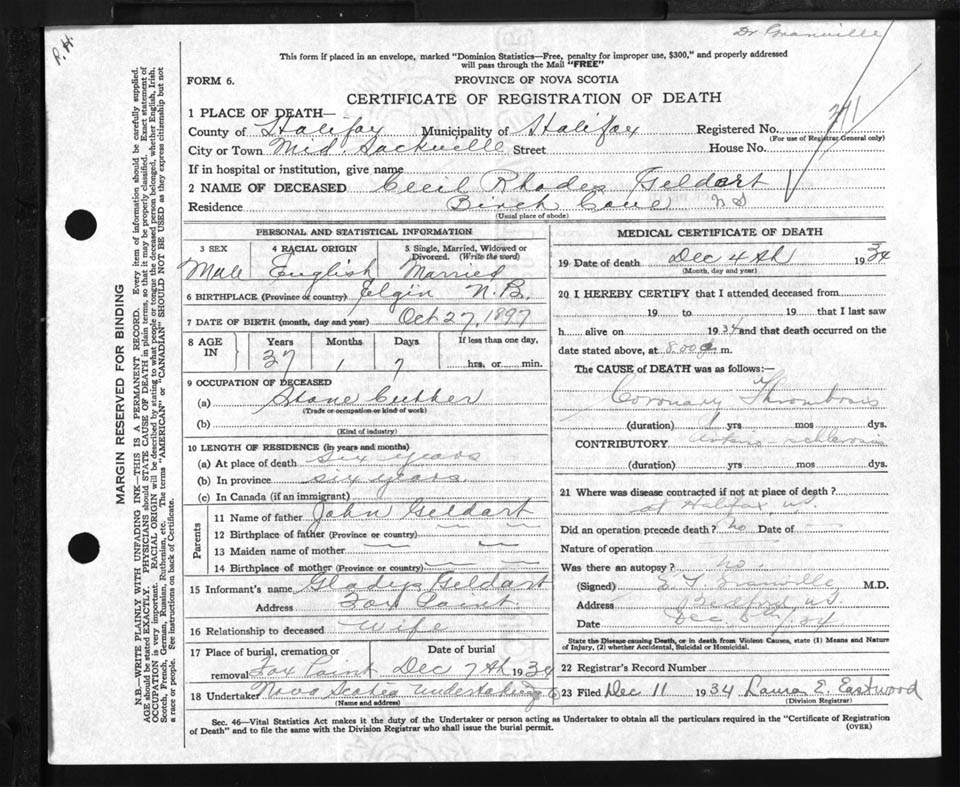 Dr Granville
P. H.
This form if placed in an envelope, marked "Dominion Statistics—Free, penalty for improper use, $300," and properly addressed
will pass through the Mail "FREE"
FORM 6.
PROVINCE OF NOVA SCOTIA
CERTIFICATE OF REGISTRATION OF DEATH
1 PLACE OF DEATH—
County of Halifax Municipality of Halifax Registered No. 741
(For use of Registrar General only)
City or Town Mid. Sackville Street House No.
If in hospital or institution, give name
2 NAME OF DECEASED Cecil Rhodes Geldart
Residence Birch Cove N S
(Usual place of abode)
PERSONAL AND STATISTICAL INFORMATION
3 SEX 4 RACIAL ORIGIN 5 Single, Married, Widowed or
Divorced. (Write the word)
Male English Married
6 BIRTHPLACE (Province or country) Elgin N.B.
7 DATE OF BIRTH (month, day and year) Oct 27, 1897
8 AGE IN Years Months Days If less than one day,
37 1 7 hrs. or min.
9 OCCUPATION OF DECEASED
(a) Stone Cutter
(Trade or occupation or kind of work)
(b)
(Kind of industry)
10 LENGTH OF RESIDENCE (in years and months)
(a) At place of death six years
(b) In province six years
(c) In Canada (if an immigrant)
Parents
11 Name of father John Geldart
12 Birthplace of father (Province or country)
13 Maiden name of mother
14 Birthplace of mother (Province or country)
15 Informant's name Gladys Geldart
Address Fox Point
16 Relationship to deceased Wife
17 Place of burial, cremation or Date of burial
removal Fox Point Dec 7th 1934
18 Undertaker Nova Scotia Undertaking Co
(Name and address)
MEDICAL CERTIFICATE OF DEATH
19 Date of death Dec 4th 1934
(Month, day and year)
20 I HEREBY CERTIFY that I attended deceased from
19 to 19 that I last saw
h alive on 1934 and that death occurred on
date stated above, at 8.00 m.
The CAUSE of DEATH was as follows:—
Coronary Thrombosis
(duration) yrs mos dys.
CONTRIBUTORY Arterio-schlerosis
(duration) yrs mos dys.
21 Where was disease contracted if not at place of death?
at Halifax, NS.
Did an operation precede death? no Date of
Nature of operation
Was there an autopsy? no.
(Signed) Granville M.D.
Address Bedford, NS.
Date Dec 5th/34
State the Disease causing Death, or in death from Violent Causes, state (1) Means and Nature
of Injury, (2) whether Accidental, Suicidal or Homicidal.
22 Registrar's Record Number
23 Filed Dec 11 1934 Laura E. Eastwood
(Division Registrar)
Sec. 46—Vital Statistics Act makes it the duty of the Undertaker or person acting as Undertaker to obtain all the particulars required in the "Certificate of Registration
of Death" and to file the same with the Division Registrar who shall issue the burial permit.
(OVER)
MARGIN RESERVED FOR BINDING
N.B.—WRITE PLAINLY WITH UNFADING INK—THIS IS A PERMANENT RECORD. Every item of information should be carefully supplied.
AGE should be stated EXACTLY. PHYSICIANS should STATE CAUSE OF DEATH in plain terms, so that it may be properly classified. Exact statement of
OCCUPATION is very important. RACIAL ORIGIN will be described by stating to what people or tongue the deceased person belonged, whether English, Irish,
Scotch, French, German, Russian, Ruthenian, etc. The terms "AMERICAN" or "CANADIAN" SHOULD NOT BE USED as they express citizenship but not
a race or people. See instructions on back of Certificate.